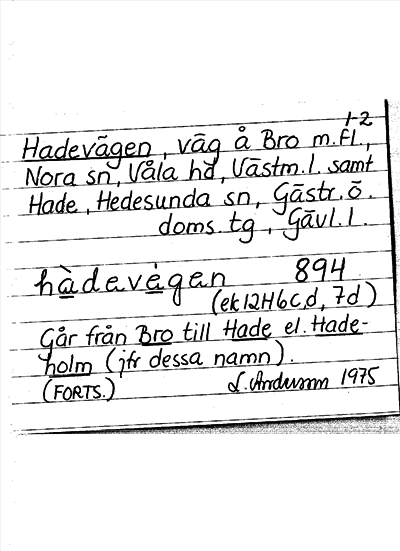 1-2
Hadevägen, väg å Bro m.fl.,
Nora sn, Våla hd, Västm.l. samt
Hade, Hedesunda sn, Gästr.ö.
doms.tg, Gävl.l.
hàdevä̀gan 894
(ek 12H6c,d, 7d)
Går från Bro till Hade el. Hade-
holm (jfr dessa namn).
(FORTS.) L. Andersson 1975